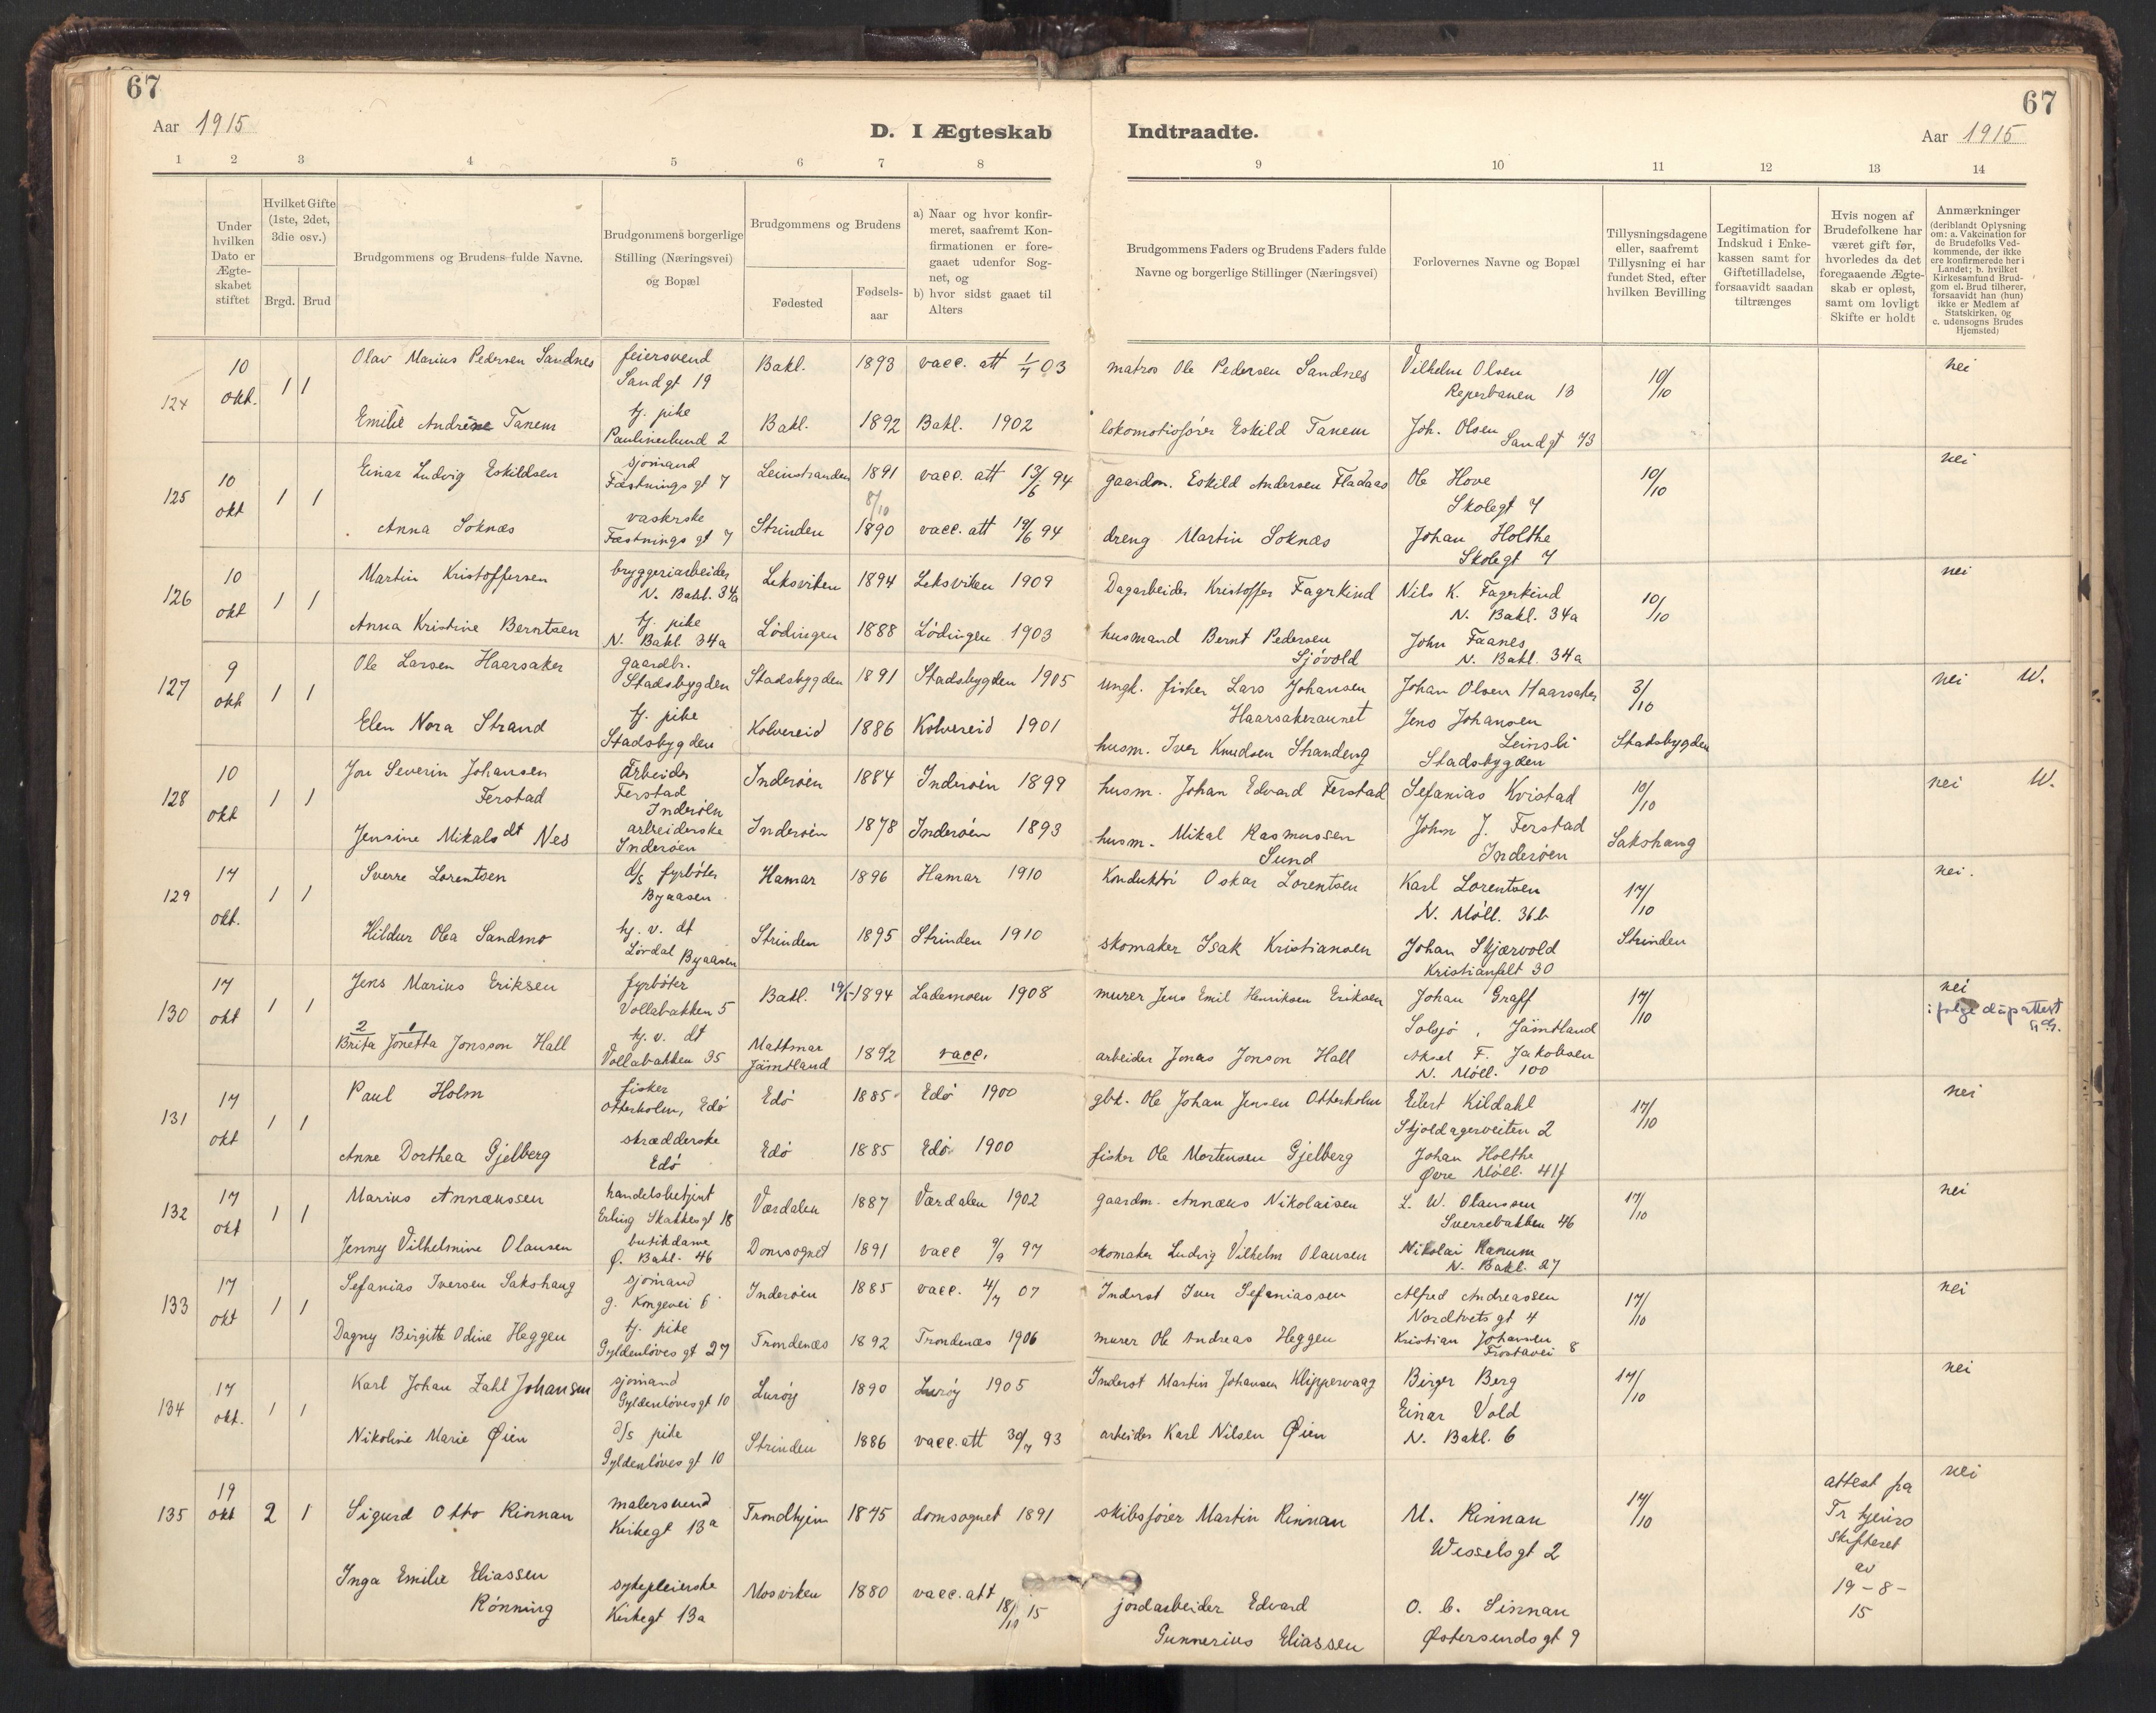 67
67
Aar 1915
D. I Ægteskab Indtraadte.
Aar 1915
1 2 3 4 5 6 7 8 9 10 11 12 13 14
Under hvilken Dato er Ægteskabet stiftet
Hvilket Gifte (1ste, 2det, 3die osv.)
Brgd. Brud
Brudgommens og Brudens fulde Navne.
Brudgommens borgerlige Stilling (Næringsvei) og Bopæl
Brudgommens og Brudens
Fødested
Fødselsaar
a) Naar og hvor konfirmeret, saafremt Konfirmationen er foregaaet udenfor Sognet, og
b) hvor sidst gaaet til Alters
Brudgommens Faders og Brudens Faders fulde Navne og borgerlige Stillinger (Næringsvei)
Forlovernes Navne og Bopæl
Tillysningsdagene eller, saafremt Tillysning ei har fundet Sted, efter hvilken Bevilling
Legitimation for Indskud i Enkekassen samt for Giftetilladelse, forsaavidt saadan tiltrænges
Hvis nogen af Brudefolkene har været gift før, hvorledes da det foregaaende Ægteskab er opløst, samt om lovligt Skifte er holdt
Anmærkninger (deriblandt Oplysning om: a. Vakcination for de Brudefolks Vedkommende, der ikke ere konfirmerede her i Landet; b. hvilket Kirkesamfund Brudgom el. Brud tilhører, forsaavidt han (hun) ikke er Medlem af Statskirken, og c. udensogns Brudes Hjemsted)
124 10 okt. 1 1
Olav Marius Pedersen Sandnes feiersvend Sandgt 19 Bakl. 1893 vacc. att 1/7 03 matros Ole Pedersen Sandnes Vilhelm Olsen Reperbanen 13 10/10 nei
Emilie Andrine Tanem tj. pike Paulinelund 2 Bakl. 1892 Bakl. 1902 lokomotivfører Eskild Tanem Joh. Olsen Sandgt 73
125 10 okt 1 1
Einar Ludvig Eskildsen sjømand Fæstningsgt 7 Leinstranden 1891 vacc. att 13/6 94 gaardm. Eskild Andersen Fladaas Ole Hove Skolegt 7 10/10 nei
Anna Soknæs vaskerske Fæstningsgt 7 Strinden 8/10 1890 vacc. att 19/6 94 dreng Martin Soknæs Johan Holthe Skolegt 7
126 10 okt 1 1
Martin Kristoffersen bryggeriarbeider N. Bakl. 34a Leksviken 1894 Leksviken 1909 Dagarbeider Kristoffer Fagerkind Nils K. Fagerkind N. Bakl. 34a 10/10 nei
Anna Kristine Berntsen tj. pike N. Bakl 34a Lødingen 1888 Lødingen 1903 husmand Bernt Pedersen Sjøvold John Faanes N. Bakl. 34a
127 9 okt 1 1
Ole Larsen Haarsaker gaardbr. Stadsbygden Stadsbygden 1891 Stadsbygden 1905 ungk. fisker Lars Johansen Haarsakeraunet Johan Olsen Haarsaker 3/10 nei W.
Elen Nora Strand tj. pike Stadsbygden Kolvereid 1886 Kolvereid 1901 husm. Iver Knudsen Strandeng Jens Johansen Leinsli Stadsbygden Stadsbygden
128 10 okt 1 1
Jon Severin Johansen Ferstad Arbeider Ferstad Inderøen Inderøen 1884 Inderøen 1899 husm. Johan Edvard Ferstad Sefanias Kvistad 10/10 nei W.
Jensine Mikalsdt Nes arbeiderske Inderøen Inderøen 1878 Inderøen 1893 husm. Mikal Rasmussen Sund John J. Ferstad Inderøen Sakshaug
129 17 okt. 1 1
Sverre Lorentsen d/s fyrbøter Byaasen Hamar 1896 Hamar 1910 Konduktør Oskar Lorentsen Karl Lorentsen N. Møll. 36b 17/10 nei.
Hildur Olea Sandmo hj. v. dt Løvdal Byaasen Strinden 1895 Strinden 1910 skomaker Isak Kristiansen Johan Skjærvold Kristianfelt 30 Strinden
130 17 okt 1 1
Jens Marius Eriksen fyrbøter Vollabakken 5 Bakl. 1894 Lademoen 1908 murer Jens Emil Henriksen Eriksen Johan Graff Solsjø, Jämtland 17/10 nei
ifølge dåpattest
2 1
Brita Jonetta Jonsson Hall hj. v. dt Vollabakken 35 Mattmar Jämtland 1892 vacc. arbeider Jonas Jonson Hall Aksel F. Jakobsen N. Møll. 100
131 17 okt 1 1
Paul Holm fisker Otterholm, Edø Edø 1885 Edø 1900 gbr. Ole Johan Jensen Otterholm Eilert Kildahl Skjoldagerveiten 2 17/10 nei
Anne Dorthea Gjelberg skrædderske Edø Edø 1885 Edø 1900 fisker Ole Mortensen Gjelberg Johan Holthe Øvre Møll. 41f
132 17 okt 1 1
Marius Annæussen handelsbetjent Erling Skakkesgt 18 Værdalen 1887 Værdalen 1902 gaardm. Annæus Nikolaisen L. W. Olaussen Sverrebakken 46 17/10 nei
Jenny Vilhelmine Olausen butikdame Ø. Bakl. 46 Domsognet 1891 vacc 9/9 97 skomaker Ludvig Vilhelm Olausen Nikolai Ranum N. Bakl. 27
133 17 okt 1 1
Sefanias Iversen Sakshaug sjømand g. Kongevei 6 Inderøen 1885 vacc. 4/7 07 Inderst Iver Sefaniassen Alfred Andreassen Nordtvetsgt 4 17/10 nei
Dagny Birgitte Odine Heggen tj. pike Gyldenløvesgt 27 Trondenæs 1892 Trondenæs 1906 murer Ole Andreas Heggen Kristian Johansen Frostavei 8
134 17 okt. 1 1
Karl Johan Zahl Johansen sjømand Gyldenløvesgt 10 Lurøy 1890 Lurøy 1905 Inderst Martin Johansen Klippervaag Birger Berg 17/10 nei
Nikoline Marie Øien d/s pike Gyldenløvesgt 10 Strinden 1886 vacc. att 30/7 93 arbeider Karl Nilsen Øien Einar Vold N. Bakl. 6
135 19 okt 2 1
Sigurd Otto Rinnan malersvend Kirkegt 13a Trondhjem 1875 domsognet 1891 skibsfører Martin Rinnan M. Rinnan Wesselsgt 2 17/10 attest fra Tr hjems skifteret av 19-8-15 nei
Inga Emilie Eliassen Rønning sykepleierske Kirkegt 13a Mosviken 1880 vacc. att 18/10 15 jordarbeider Edvard Gunnerius Eliassen O. C. Sinnan Østersundsgt 9